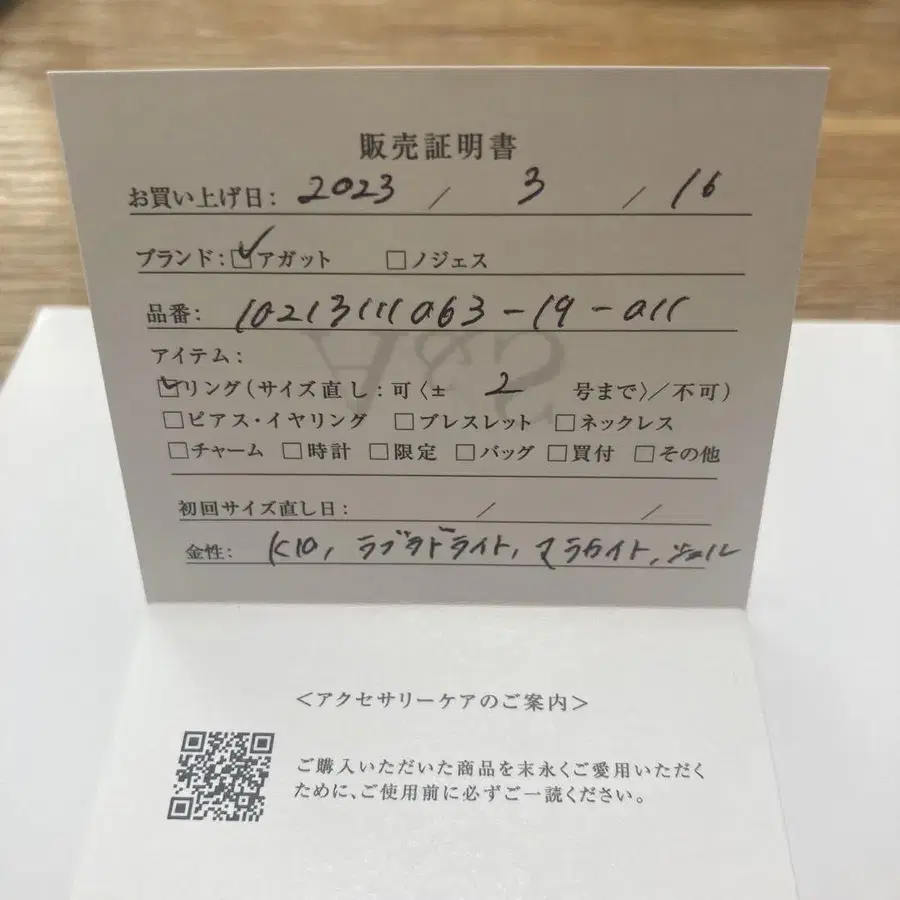 販売証明書
お買い上げ日: 2023 / 3 / 16
ブランド: ☑アガット □ノジェス
品番: 10213111063-19-011
アイテム:
☑リング(サイズ直し:可〈± 2 号まで〉/不可)
□ピアス・イヤリング □ブレスレット □ネックレス
□チャーム □時計 □限定 □バッグ □買付 □その他
初回サイズ直し日: / /
金性: K10, ラブラドライト, マラカイト,
<アクセサリーケアのご案内>
ご購入いただいた商品を末永くご愛用いただく
ために、ご使用前に必ずご一読ください。